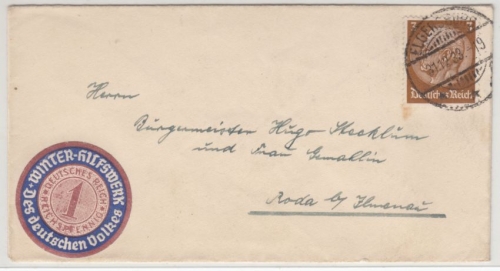 3
Deutsches Reich
Herrn
Bürgermeister Hugo Stecklum
und Frau Gemallin
Roda b/ Ilmenau
WINTER-HILFSWERK
Des deutschen Volkes
DEUTSCHES REICH
1
REICHSPFENNIG